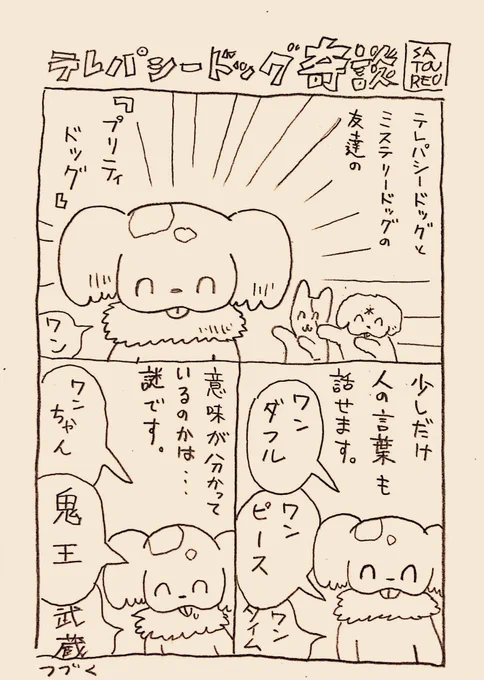 テレパシードッグ奇談
SA
TOU
REO
テレパシードッグと
ミステリードッグの
友達の
『プリティ
ドッグ』
ワン
少しだけ
人の言葉も
話せます。
ワン
ダフル
ワン
ピース
ワン
タイム
意味が分かって
いるのかは…
謎です。
ワン
ちゃん
鬼王
武蔵
つづく